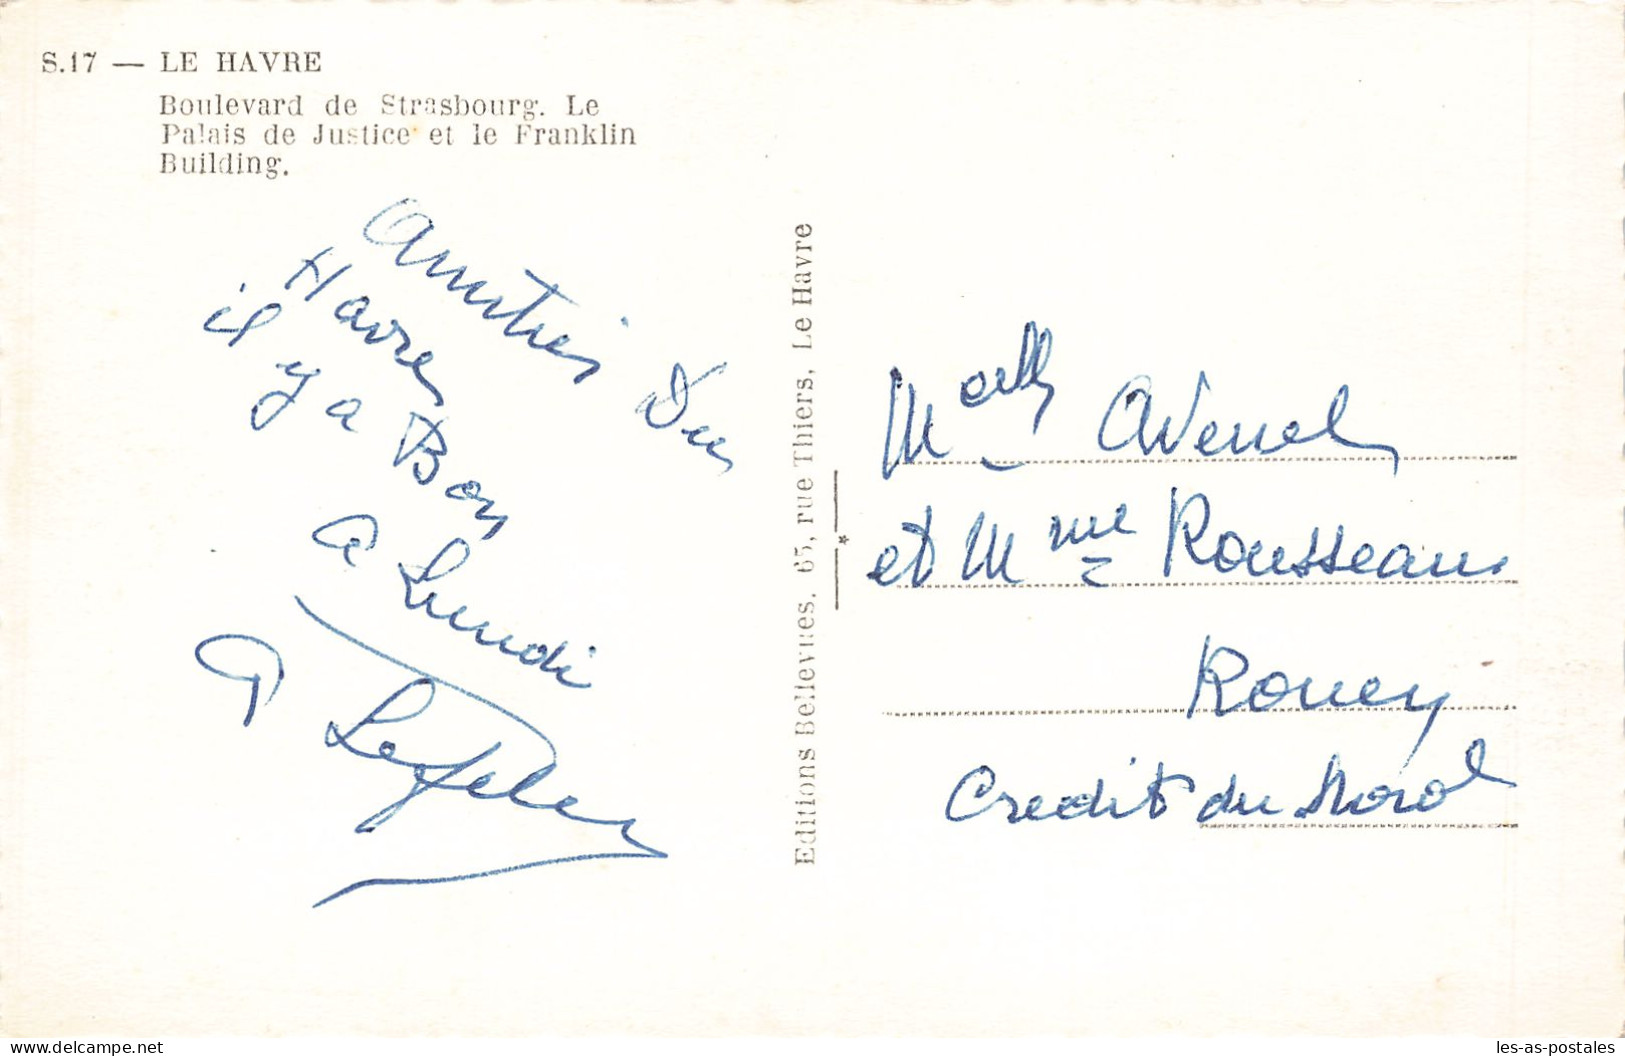 S.17 — LE HAVRE
Boulevard de Strasbourg. Le
Palais de Justice et le Franklin
Building.
Amitiés Du
Havre
il y a Bon
a Lundi
Editions Bellevues. 65, rue Thiers, Le Havre
Melle Avenel
et Mme Rousseau
Rouen
Credit du Nord
les-as-postales.com
les-as-postales